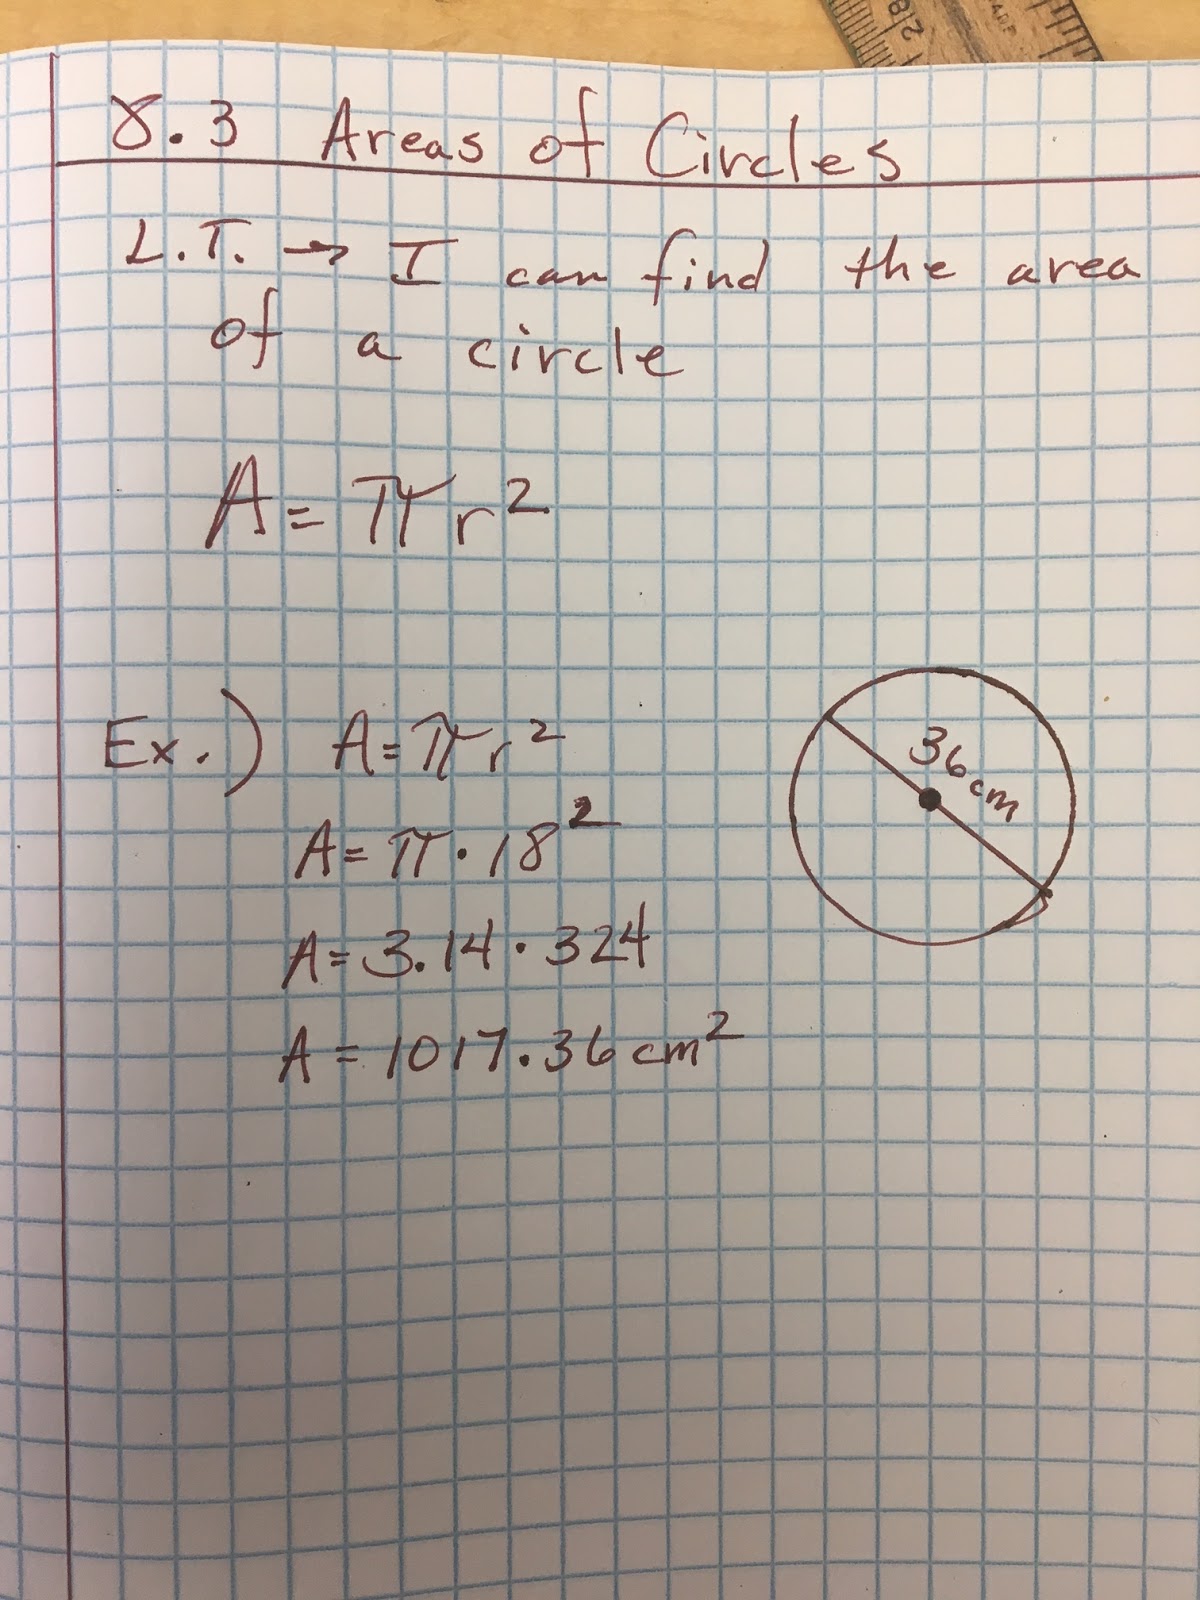 8.3 Areas of Circles
L.T. → I can find the area
of a circle
A = πr²
Ex.) A = πr²
36cm
A = π · 18²
A = 3.14 · 324
A = 1017.36 cm²